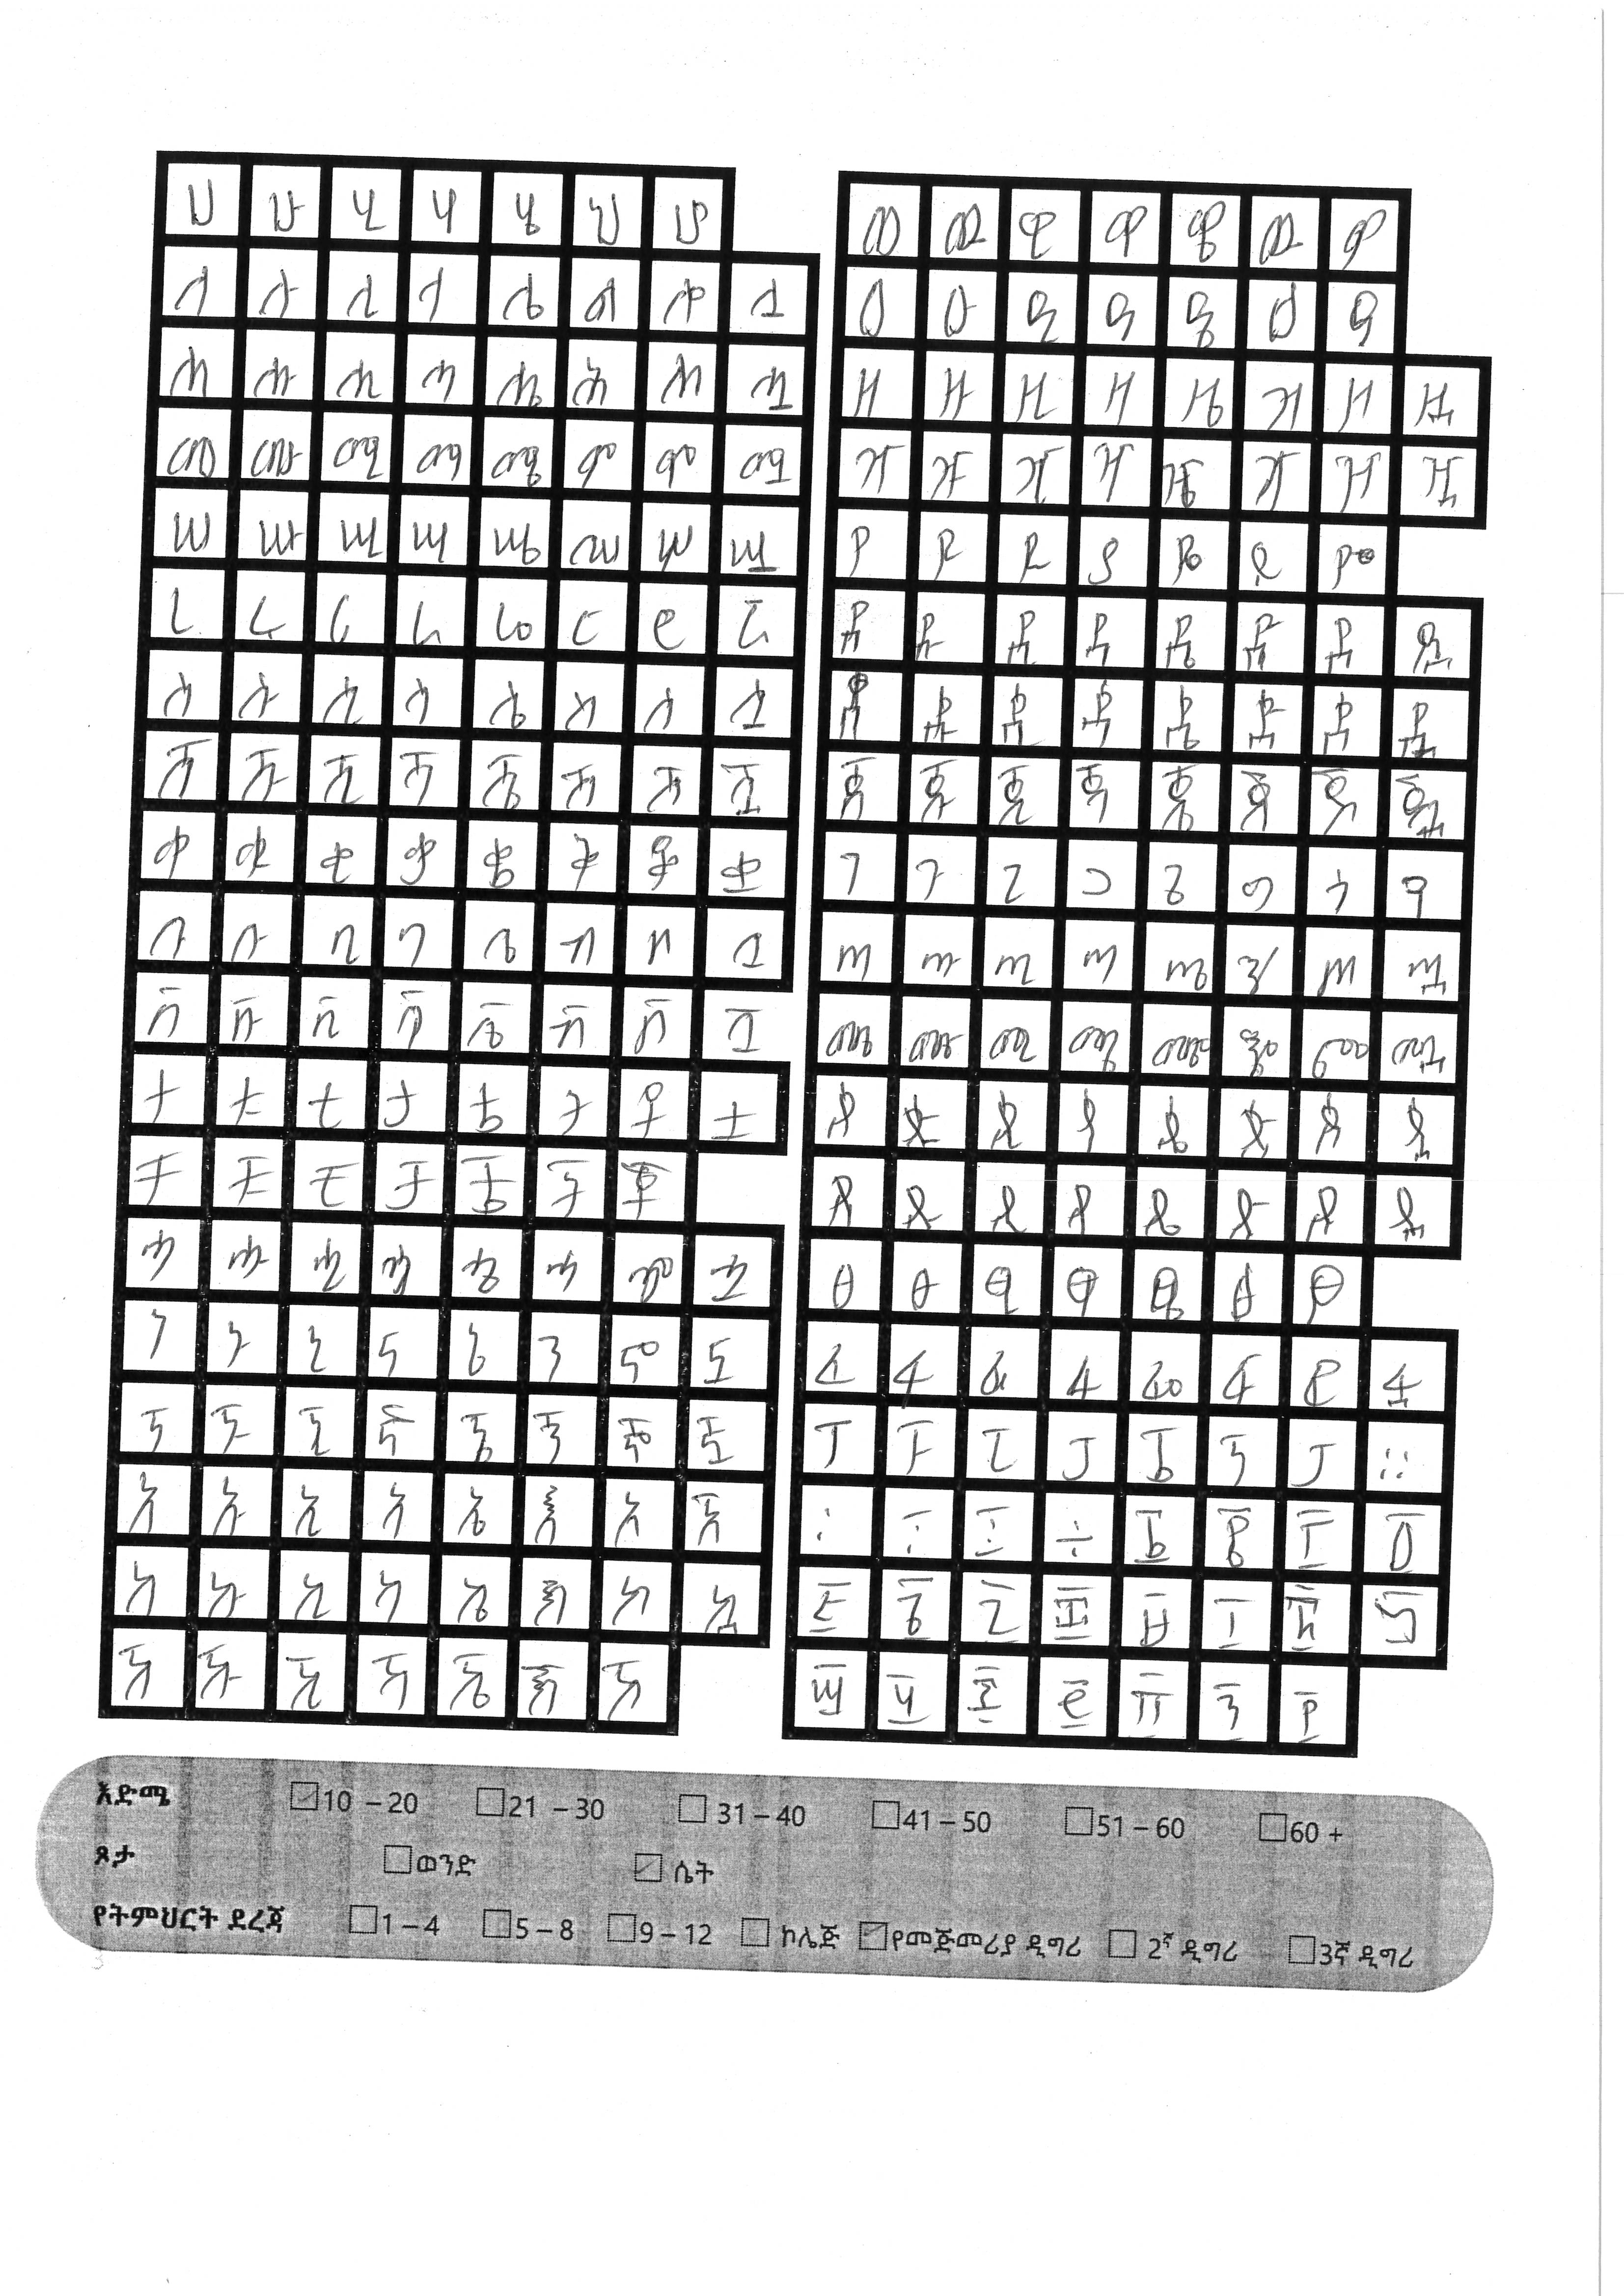 ሀ ሁ ሂ ሃ ሄ ህ ሆ
ለ ሉ ሊ ላ ሌ ል ሎ ሏ
ሐ ሑ ሒ ሓ ሔ ሕ ሖ ሗ
መ ሙ ሚ ማ ሜ ም ሞ ሟ
ሠ ሡ ሢ ሣ ሤ ሥ ሦ ሧ
ረ ሩ ሪ ራ ሬ ር ሮ ሯ
ሰ ሱ ሲ ሳ ሴ ስ ሶ ሷ
ሸ ሹ ሺ ሻ ሼ ሽ ሾ ሿ
ቀ ቁ ቂ ቃ ቄ ቅ ቆ ቋ
በ ቡ ቢ ባ ቤ ብ ቦ ቧ
ቨ ቩ ቪ ቫ ቬ ቭ ቮ ቯ
ተ ቱ ቲ ታ ቴ ት ቶ ቷ
ቸ ቹ ቺ ቻ ቼ ች ቾ
ኀ ኁ ኂ ኃ ኄ ኅ ኆ ኋ
ነ ኑ ኒ ና ኔ ን ኖ ኗ
ኘ ኙ ኚ ኛ ኜ ኝ ኞ ኟ
አ ኡ ኢ ኣ ኤ እ ኦ ኧ
ከ ኩ ኪ ካ ኬ ክ ኮ ኳ
ኸ ኹ ኺ ኻ ኼ ኽ ኾ
ወ ዉ ዊ ዋ ዌ ው ዎ
ዐ ዑ ዒ ዓ ዔ ዕ ዖ
ዘ ዙ ዚ ዛ ዜ ዝ ዞ ዟ
ዠ ዡ ዢ ዣ ዤ ዥ ዦ ዧ
የ ዩ ዪ ያ ዬ ይ ዮ
ደ ዱ ዲ ዳ ዴ ድ ዶ ዷ
ጀ ጁ ጂ ጃ ጄ ጅ ጆ ጇ
ገ ጉ ጊ ጋ ጌ ግ ጎ ጓ
ጠ ጡ ጢ ጣ ጤ ጥ ጦ ጧ
ጨ ጩ ጪ ጫ ጬ ጭ ጮ ጯ
ጰ ጱ ጲ ጳ ጴ ጵ ጶ ጷ
ጸ ጹ ጺ ጻ ጼ ጽ ጾ ጿ
ፀ ፁ ፂ ፃ ፄ ፅ ፆ
ፈ ፉ ፊ ፋ ፌ ፍ ፎ ፏ
ፐ ፑ ፒ ፓ ፔ ፕ ፖ ።
፡ ፣ ፤ ÷ ፩ ፪ ፫ ፬
፭ ፮ ፯ ፰ ፱ ፲ ፳ ፴
፵ ፶ ፷ ፸ ፹ ፺ ፻
እድሜ 10 – 20 21 – 30 31 – 40 41 – 50 51 – 60 60 +
ጾታ ወንድ ሴት
የትምህርት ደረጃ 1 – 4 5 – 8 9 – 12 ኮሌጅ የመጀመሪያ ዲግሪ 2ኛ ዲግሪ 3ኛ ዲግሪ